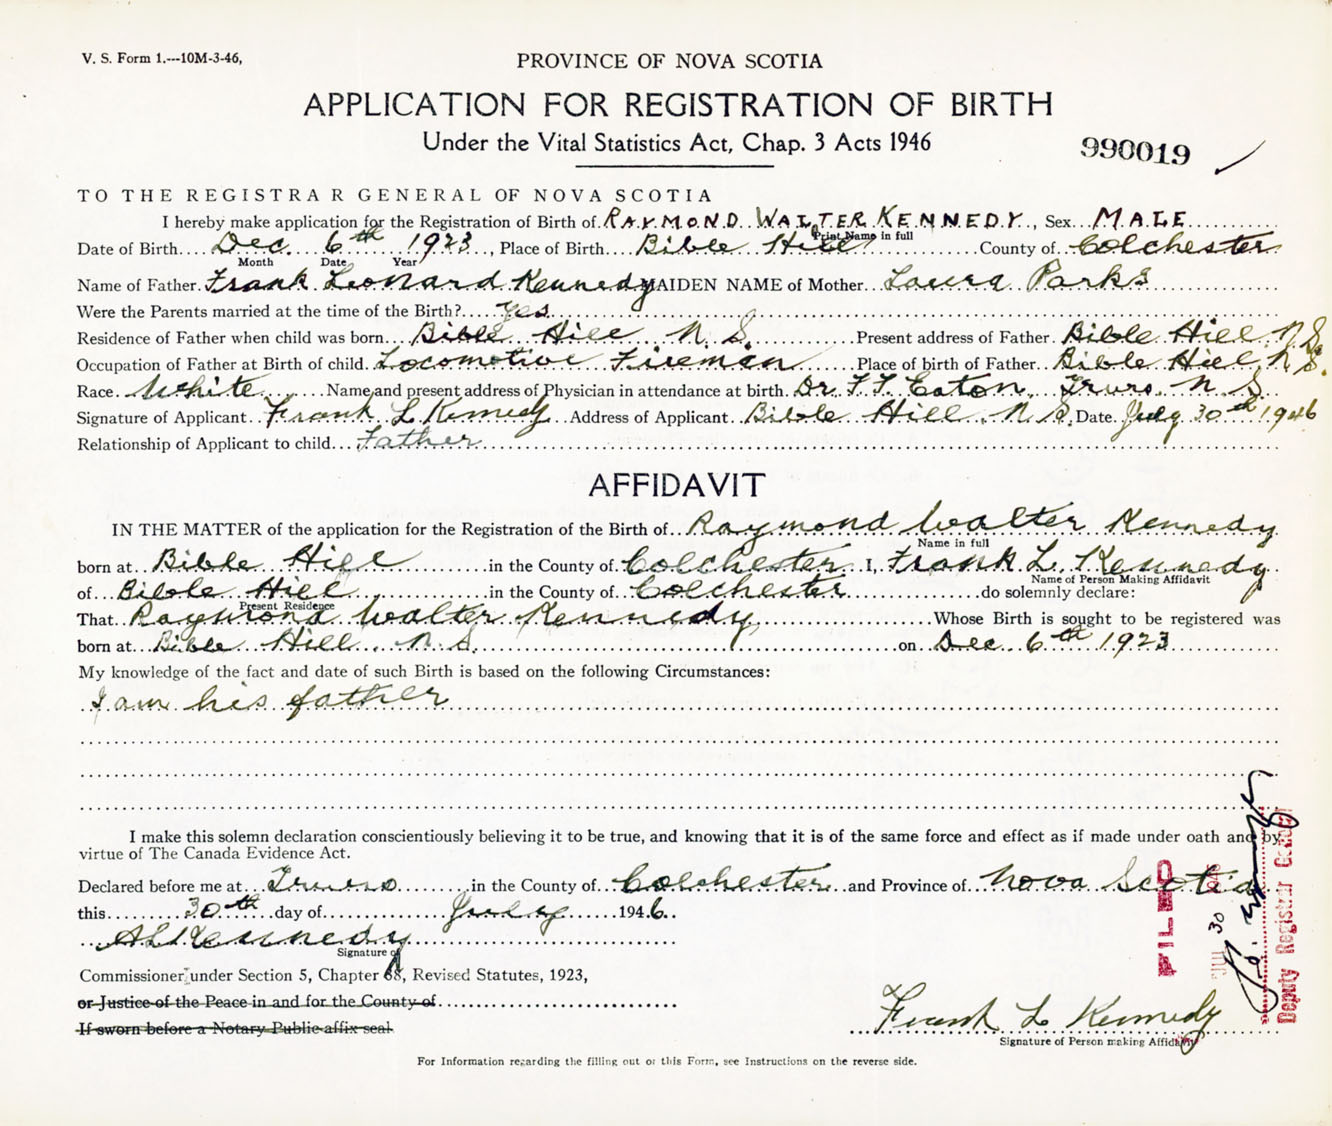 V. S. Form 1.---10M-3-46,
PROVINCE OF NOVA SCOTIA
APPLICATION FOR REGISTRATION OF BIRTH
Under the Vital Statistics Act, Chap. 3 Acts 1946
990019
TO THE REGISTRAR GENERAL OF NOVA SCOTIA
I hereby make application for the Registration of Birth of RAYMOND WALTER KENNEDY, Sex MALE
Print Name in full
Date of Birth Dec. 6th 1923, Place of Birth Bible Hill County of Colchester
Month Date Year
Name of Father Frank Leonard Kennedy MAIDEN NAME of Mother Laura Parks
Were the Parents married at the time of the Birth? Yes
Residence of Father when child was born Bible Hill N. S. Present address of Father Bible Hill N S
Occupation of Father at Birth of child Locomotive Fireman Place of birth of Father Bible Hill N S.
Race White Name and present address of Physician in attendance at birth Dr. F. F. Eaton Truro N S.
Signature of Applicant Frank L Kennedy Address of Applicant Bible Hill N S. Date July 30th 1946
Relationship of Applicant to child Father
AFFIDAVIT
IN THE MATTER of the application for the Registration of the Birth of Raymond Walter Kennedy
Name in full
born at Bible Hill in the County of Colchester I, Frank L. Kennedy
Name of Person Making Affidavit
of Bible Hill in the County of Colchester do solemnly declare:
Present Residence
That Raymond Walter Kennedy Whose Birth is sought to be registered was
born at Bible Hill N S. on Dec 6th 1923
My knowledge of the fact and date of such Birth is based on the following Circumstances:
I am his father
I make this solemn declaration conscientiously believing it to be true, and knowing that it is of the same force and effect as if made under oath and by
virtue of The Canada Evidence Act.
Declared before me at Truro in the County of Colchester and Province of Nova Scotia
this 30th day of July 1946
A L Kennedy
Signature of
Commissioner under Section 5, Chapter 68, Revised Statutes, 1923,
or Justice of the Peace in and for the County of
If sworn before a Notary Public affix seal
Frank L Kennedy
Signature of Person making Affidavit
For Information regarding the filling out of this Form, see Instructions on the reverse side.
FILED
JUL 30 1946
Deputy Registrar General